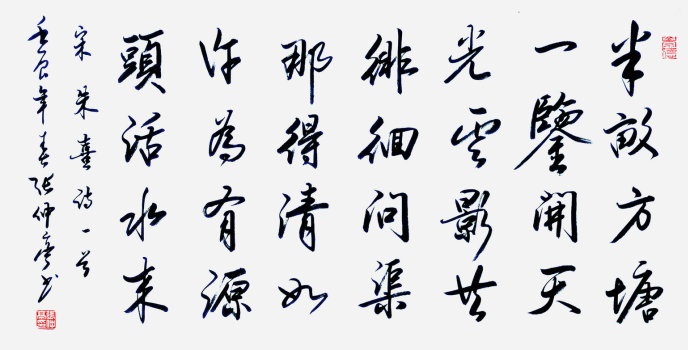 半畝方塘
一鑒開天
光雲影共
徘徊問渠
那得清如
許為有源
頭活水來
宋朱熹詩一首
壬辰年春張仲亭書